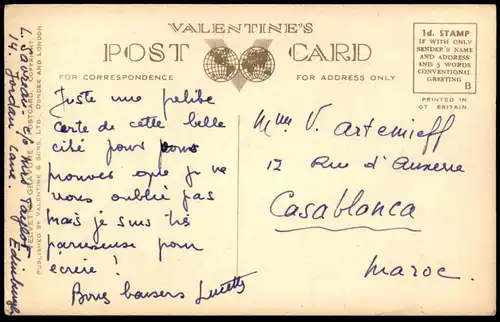 VALENTINE'S
POST CARD
FOR CORRESPONDENCE
FOR ADDRESS ONLY
1d. STAMP
IF WITH ONLY
SENDER'S NAME
AND ADDRESS
AND 5 WORDS
CONVENTIONAL
GREETING
B
PRINTED IN
GT BRITAIN
Juste une petite
carte de cette belle
cité pour vous
prouver que je ne
vous oublie pas
mais je suis très
paresseuse pour
écrire!
Bons baisers
Mme V. Artemieff
12 Rue d'Auxerre
Casablanca
Maroc.
c/o Mrs
14. Jordan Lane. Edinburgh
COPYRIGHT
PUBLISHED BY VALENTINE & SONS, LTD. DUNDEE AND LONDON